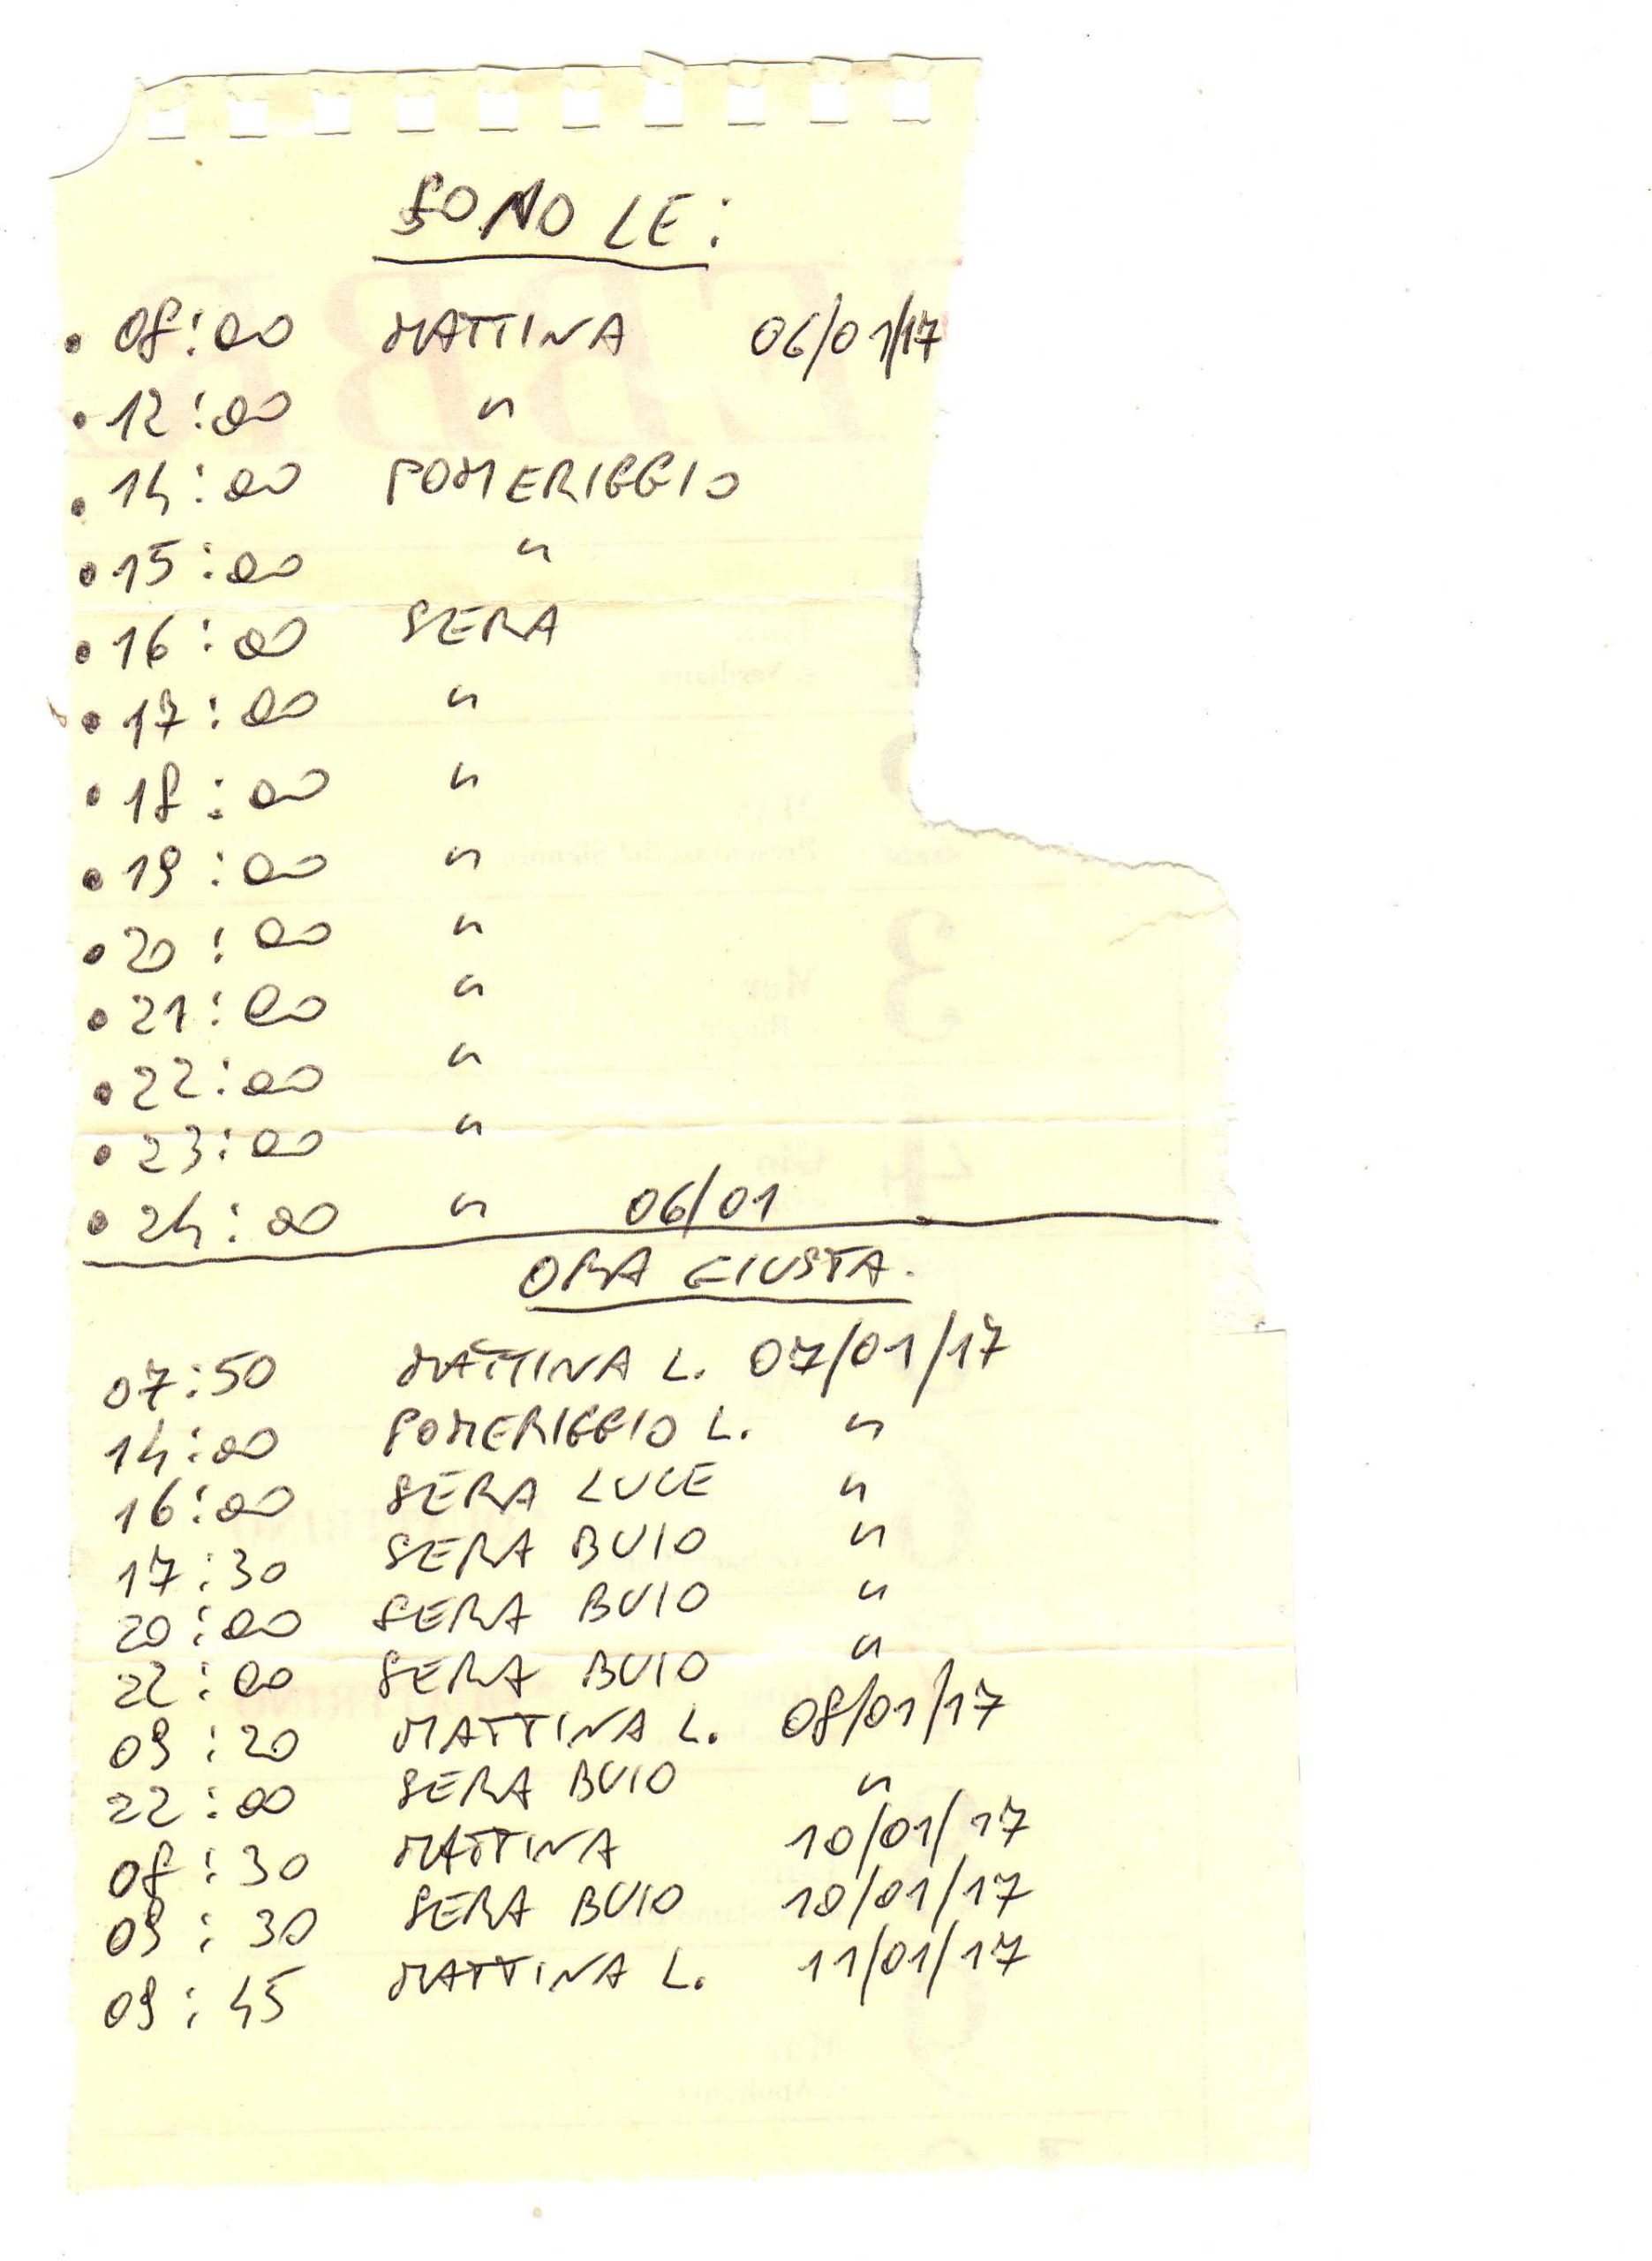 SONO LE:
• 08:00 MATTINA 06/01/17
• 12:00 "
• 14:00 POMERIGGIO
• 15:00 "
• 16:00 SERA
• 17:00 "
• 18:00 "
• 19:00 "
• 20:00 "
• 21:00 "
• 22:00 "
• 23:00 "
• 24:00 " 06/01
ORA GIUSTA.
07:50 MATTINA L. 07/01/17
14:00 POMERIGGIO L. "
16:00 SERA LUCE "
17:30 SERA BUIO "
20:00 SERA BUIO "
22:00 SERA BUIO "
09:20 MATTINA L. 08/01/17
22:00 SERA BUIO "
08:30 MATTINA 10/01/17
09:30 SERA BUIO 10/01/17
09:45 MATTINA L. 11/01/17